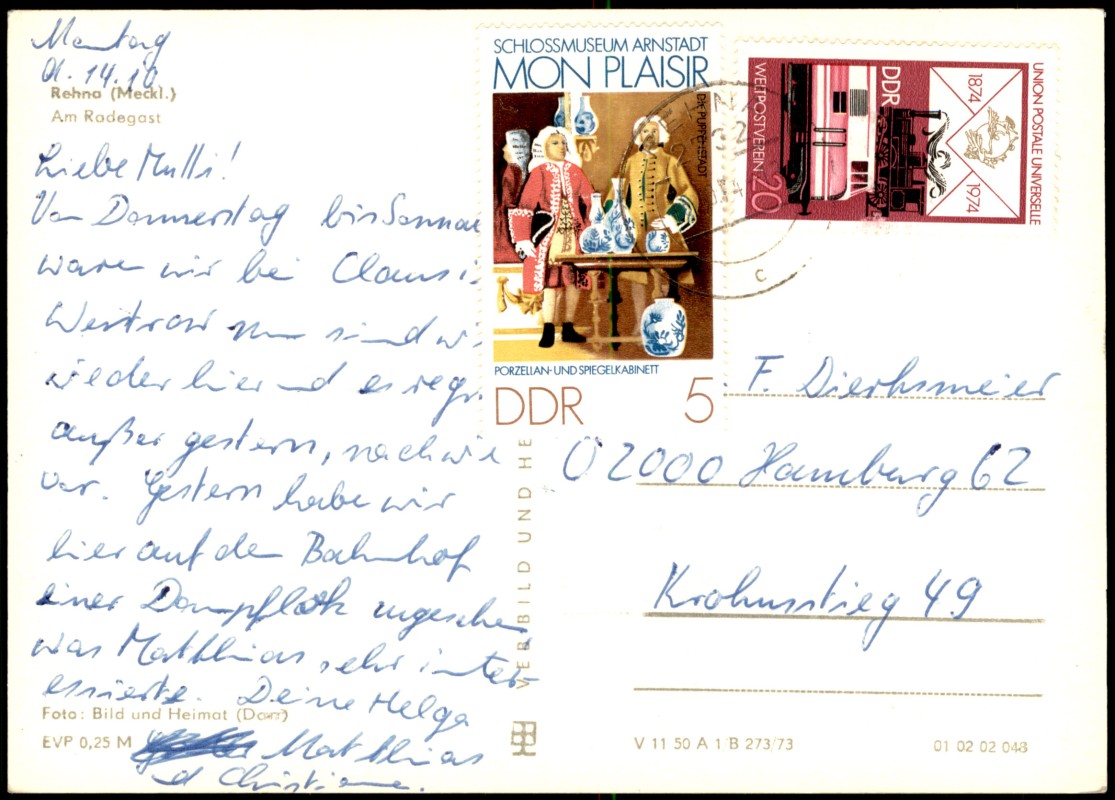 Montag
d. 14.10
Rehna (Meckl.)
Am Radegast
Liebe Mutti!
Von Donnerstag bis Sonna
waren wir bei Claus i.
nun sind wi
wieder hier und es regn
außer gestern, nach wie
vor. Gestern habe wir
hier auf dem Bahnhof
einer Dampflok zugesehen
was Matthias sehr inter-
essierte. Deine Helga
Matthias
d Christiane.
Foto: Bild und Heimat (Dorr)
EVP 0,25 M
VEB BILD UND HE
SCHLOSSMUSEUM ARNSTADT
MON PLAISIR
DIE PUPPENSTADT
PORZELLAN- UND SPIEGELKABINETT
DDR 5
UNION POSTALE UNIVERSELLE
1874 1974
DDR
WELTPOSTVEREIN 20
c
F. Dierksmeier
Ö 2000 Hamburg 62
Krohnstieg 49
V 11 50 A 1/B 273/73
01 02 02 048